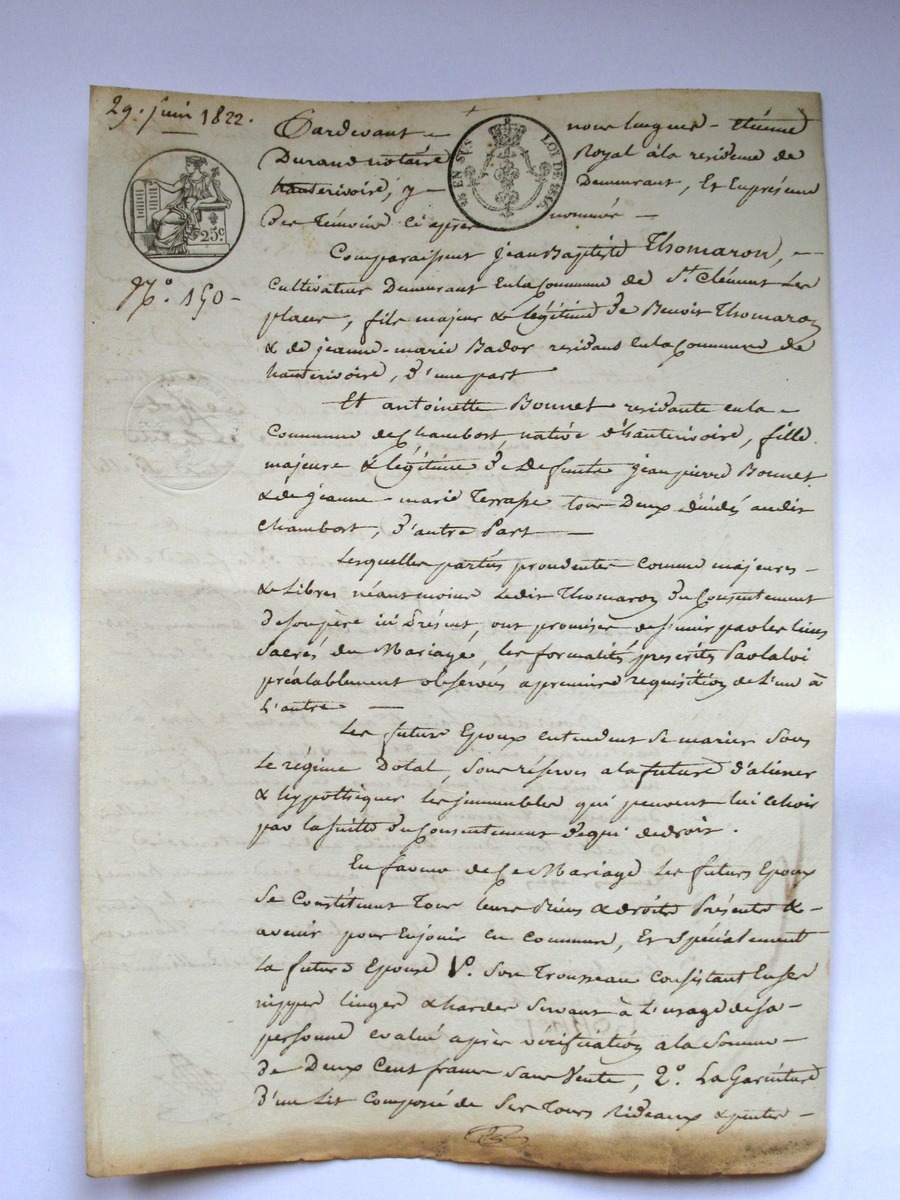 29. juin 1822.
Pardevant nous Etiénne
Durand notaire Royal à la residence de
hauterivoire, y Demeurant, Et En présence
Des témoins Ci après nommés
EN SUS LOI DE 1816.
25c
No. 190
Comparaissent jean Baptiste Thomaron,
Cultivateur Demeurant En la Commune de St. Clément Les
places, fils majeur & légitime de Benoit Thomaron
& de jeanne-marie Bador residans En la Commune de
hauterivoire, D'une part
Et antoinette Bonnet residante en la
Commune de Chambost, native d'hauterivoire, fille
majeure & légitime de Defunts jean pierre Bonnet
& de jeanne-marie Terrasse tous Deux décédés audit
Chambost, D'autre Part
Lesquelles parties procedentes Comme majeures
& Libres néantmoins Ledit Thomaron Du Consentement
De son père ici Présent, ont promises de s'unir par les liens
Sacrés du Mariage, les formalités prescrites Par la loi
préalablement observées a premiere requisition de L'un à
L'autre
Les futurs Epoux entendent se marier Sous
Le régime Dotal, Sous réserves a la future d'aliener
& hypothéquer les immeubles qui peuvent lui échoir
par la suitte du Consentement de qui de droit.
En faveur de Ce Mariage Les futurs Epoux
Se Constituent Tous leurs Biens & droits Présents &
avenir pour En jouir En Commun, Et Spécialement
La future Epouse 1°. Son Trousseau Consistant En ses
nippes linges & hardes Servant à L'usage de sa
personne évalué après vérification a la Somme
de Deux Cent francs Sans Vente, 2°. La Garniture
D'un Lit Composée de Ses Tours Rideaux & pentes